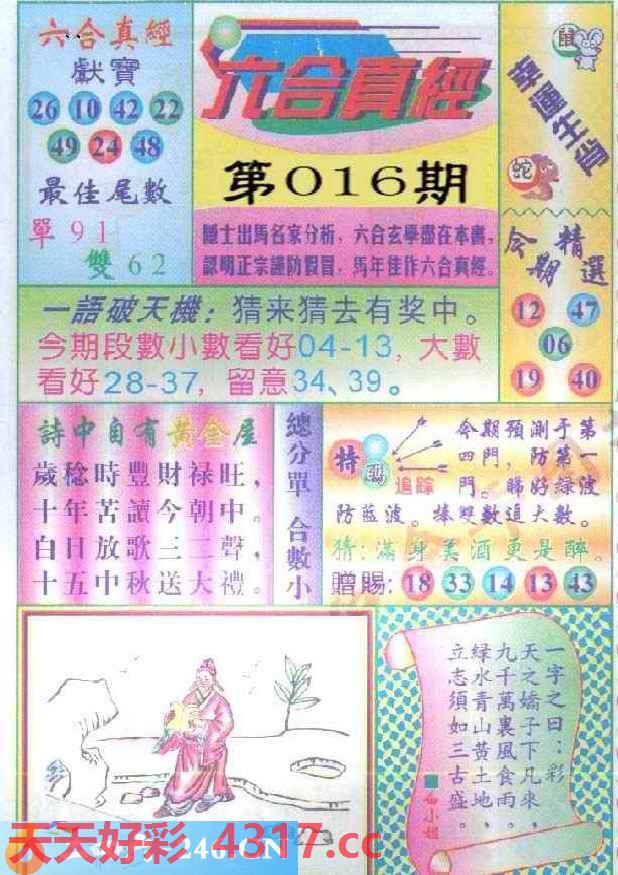 六合真經
獻寶
26 10 42 22
49 24 48
最佳尾數
單 91
雙 62
六合真經
第016期
隱士出馬名家分析，六合玄學盡在本書，
認明正宗謹防假冒，馬年佳作六合真經。
鼠
幸運生肖
蛇
今期精選
12 47
06
19 40
一語破天機：猜来猜去有奖中。
今期段數小數看好04-13，大數
看好28-37，留意34、39。
詩中自有黃金屋
歲稔時豐財禄旺，
十年苦讀今朝中。
白日放歌三二聲，
十五中秋送大禮。
總分單 合數小
特碼
追踪
今期預測于第
四門，防第一
門。睇好綠波
防藍波。捧雙數追大數。
猜：滿身美酒更是醉。
贈賜：18 33 14 13 43
一字之曰：彩
天之嬌子下凡來，
九千萬裏風食雨，
绿水青山黃土地。
立志須如三古盛。
天天好彩 4317.cc
246.CN